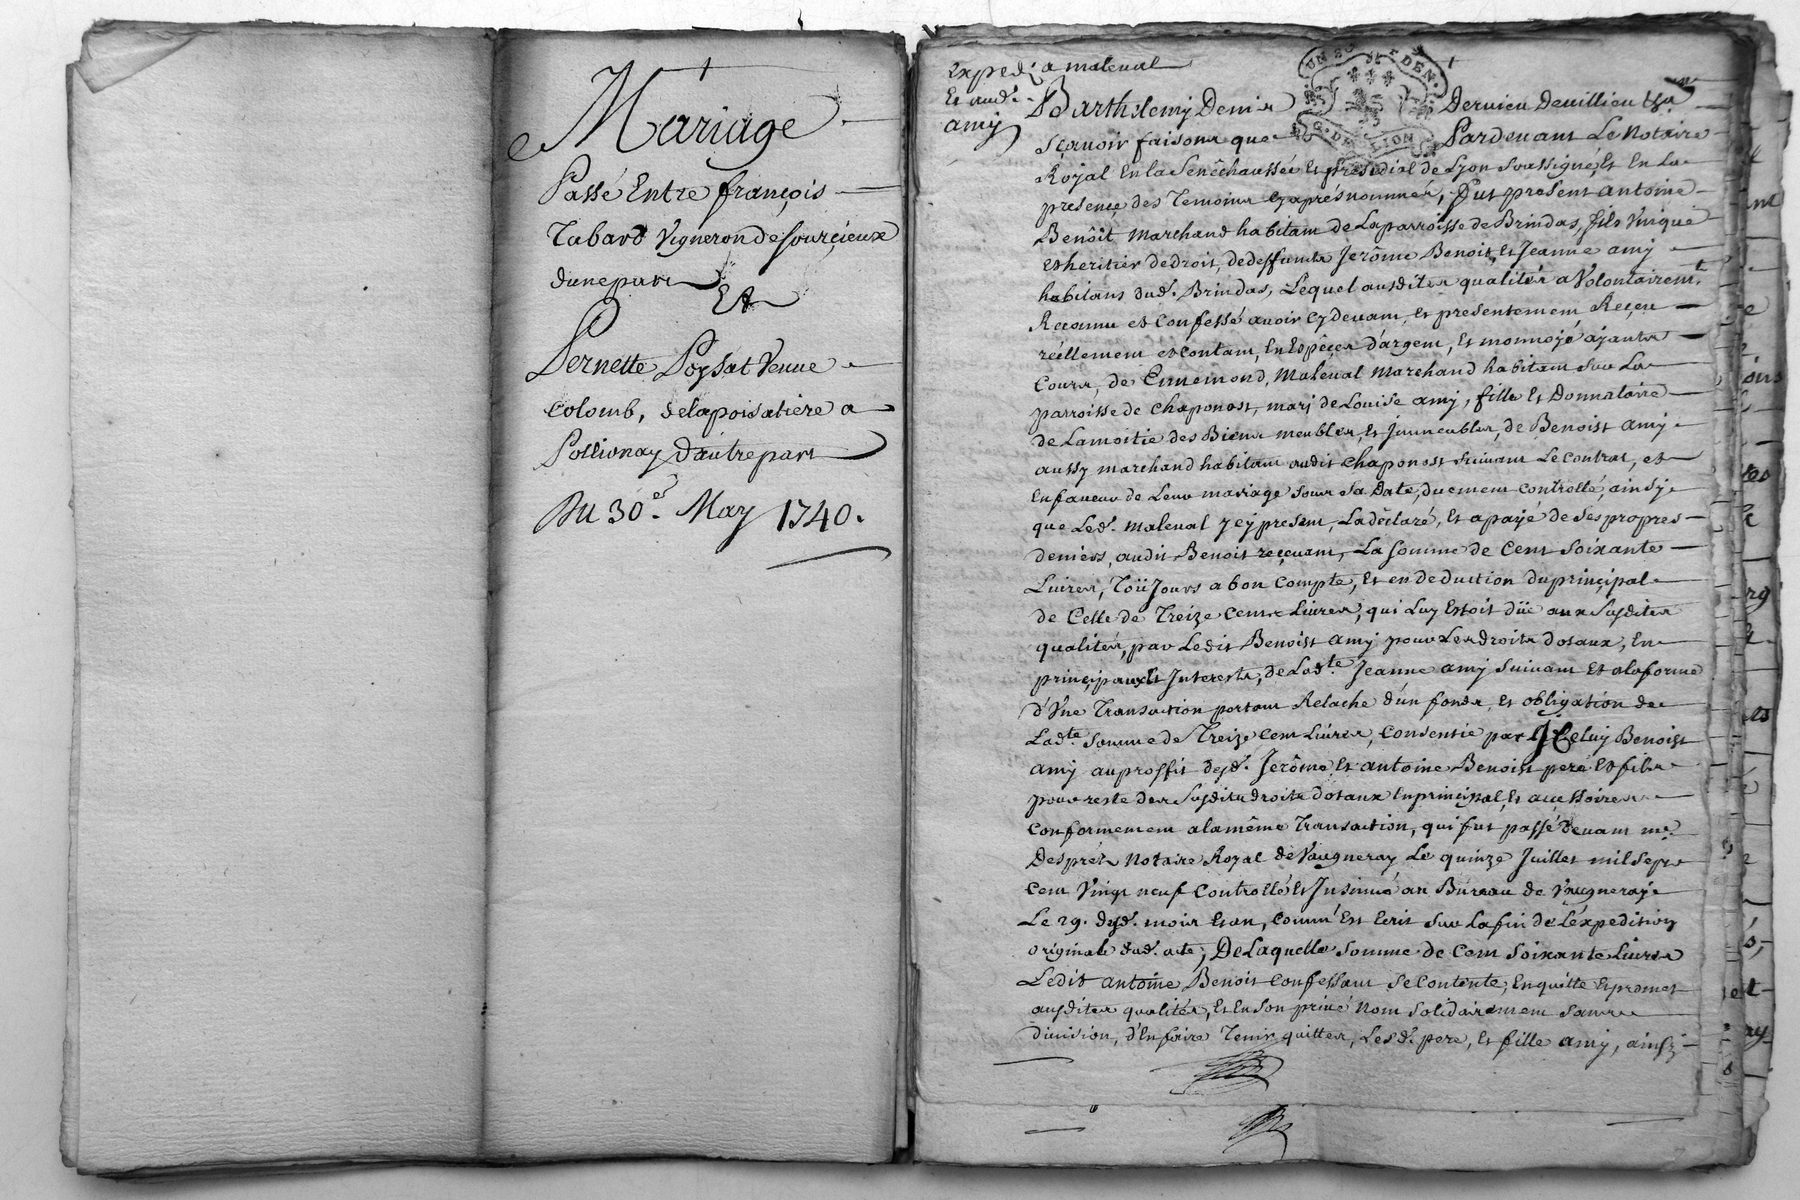 Mariage
Passé Entre françois
Tabard Vigneron de sourçieux
dune part
Et
Pernette Poysat Veuve
Colomb, de lapoisatiere a
Pollionay D'autre part
Du 30e. May 1740.
Exped. a maleval
Et aud.
amy
Barthelemy Denis Dervieu Devillieu
Sçavoir faisons que Pardevant Le Notaire
Royal En la Senêchaussée Et présidial de Lyon Soussigné, Et En La
presence des Temoins cy aprés nommés, fut present antoine
Benôit marchand habitant de Laparroisse de Brindas, fils Vnique
et heritier de droit, de deffunts Jerôme Benoit, Et Jeanne amy
habitans dud. Brindas, Lequel ausdites qualités a Volontairemt.
Reconnu et Confessé avoir cy devant, et presentement Reçeu
réellement et contant, En Espèces d'argent, Et monnoye ayants
Cours, de Ennemond, Maleval Marchand habitant sur La
parroisse de Chaponost, mary de Louise amy, fille Et Donnataire
de Lamoitié des Biens meubles, Et Immeubles, de Benoist amy
aussy marchand habitant audit Chaponost suivant Le Contrat, et
En faveur de Leur mariage sous sa Date, duement Controllé, ainsy
que Led. maleval y cy present La déclaré, Et apayé de ses propres
deniers, audit Benoit reçevant, La somme de Cent soixante
Livres, Toûjours a bon Compte, Et en deduction du principal
de Celle de Treize Cents Livres, qui Luy Estoit düe aux Susdites
qualités, par Ledit Benoist Amy pour Les droits dotaux, En
principaux Et Interests, de Ladte. Jeanne amy suivant Et alaforme
d'Vne Transaction portant Relache d'un fonds, Et obligation de
Ladte. somme de Treize Cent Livres, Consentie par Iceluy Benoist
amy au proffit desd. Jerôme Et antoine Benoist pere Et fils
pour reste des Susdits droits dotaux En principal, Et accessoires
conformement ala même Transaction, qui fut passé devant me.
Després Notaire Royal de Vaugneray Le quinze Juillet mil sept
cent Vingt neuf Controllé Et Insinué au Bureau de Vaugneray
Le 29. desd. mois Et an, comme Est Ecrit sur La fin de L'éxpedition
originale dud. acte, De Laquelle somme de Cent Soixante Livres
Ledit antoine Benoit Confessant se Contente, En quitte Et promet
ausdites qualités, Et En son privé Nom solidairement sans
division, d'En faire Tenir quittes, Lesd. pere, Et fille amy, ainsy